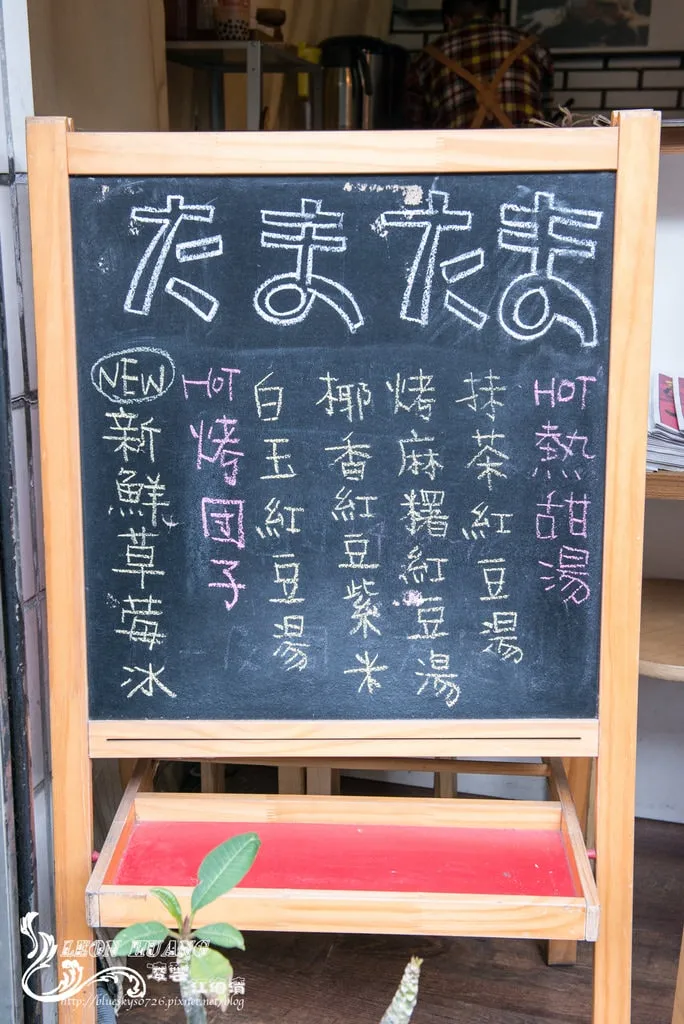 たまたま
HOT 熱甜湯
抹茶紅豆湯
烤麻糬紅豆湯
椰香紅豆紫米
白玉紅豆湯
HOT 烤団子
NEW 新鮮草莓冰
LEON HUANG
http://bluesky50726.pixnet.net/blog